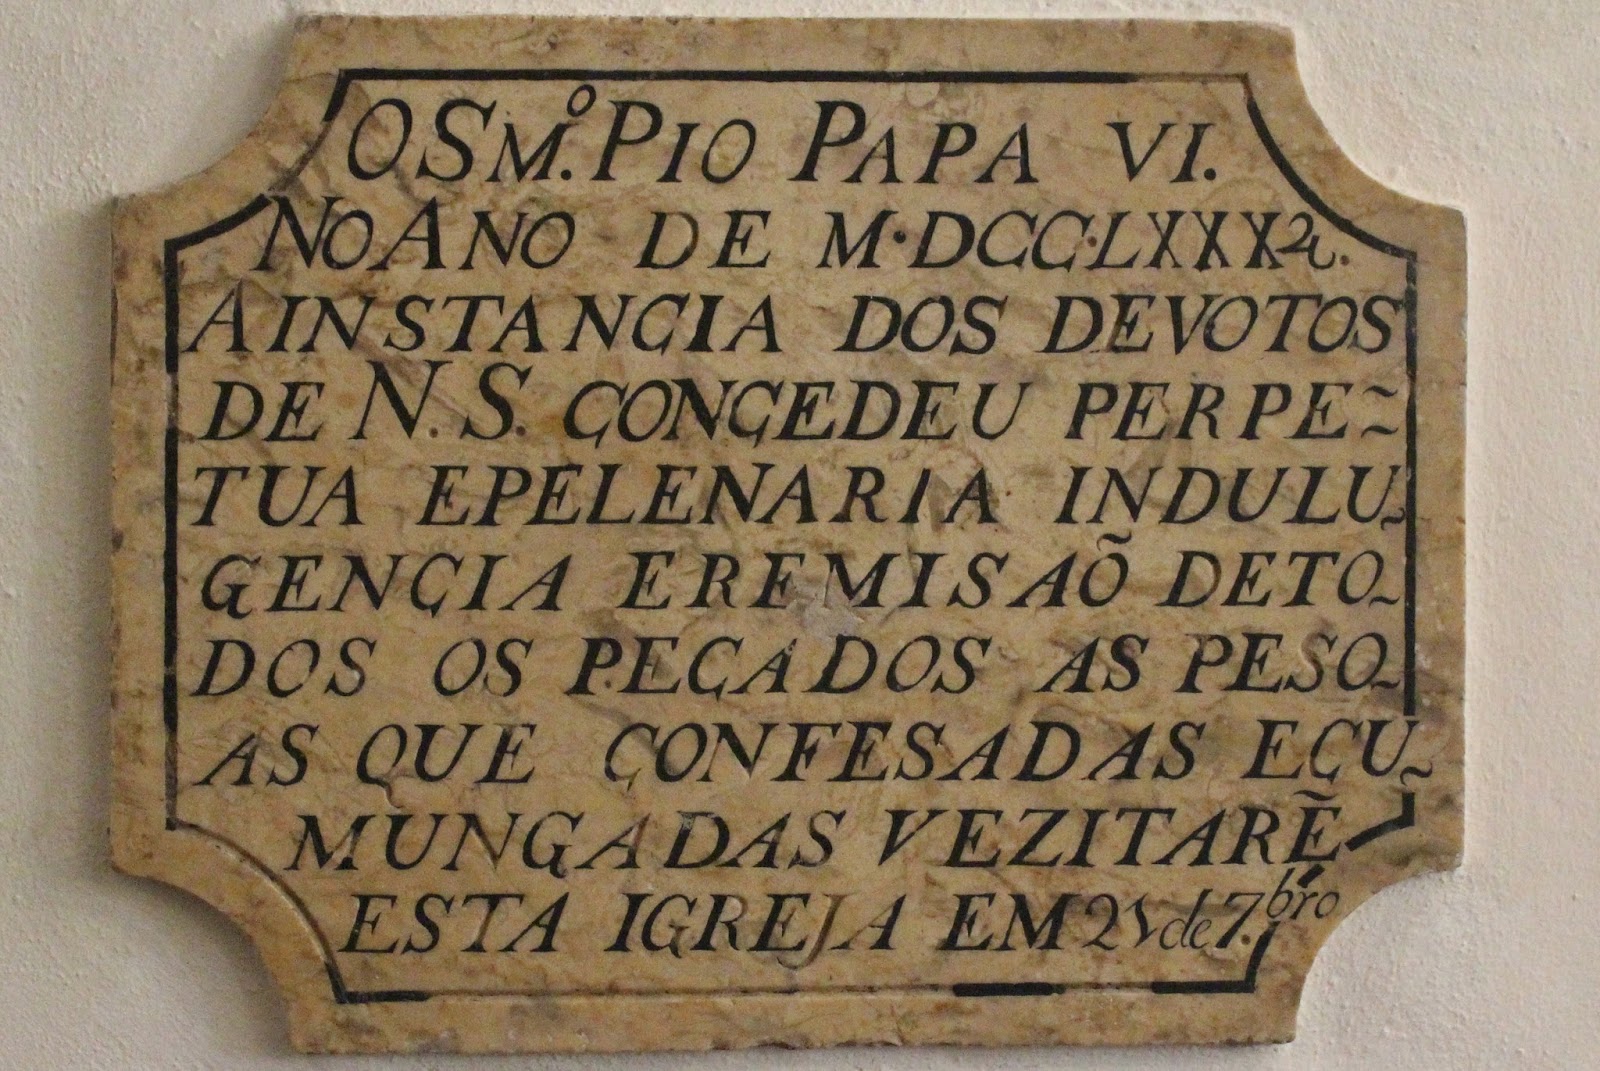 O SM.º PIO PAPA VI.
NO ANO DE M.DCCC.LXXX2.
A INSTANCIA DOS DEVOTOS
DE N. S. CONCEDEU PERPE~
TUA EPELENARIA INDULU~
GENCIA EREMISAÕ DETO~
DOS OS PECADOS AS PESO~
AS QUE CONFESADAS ECU~
MUNGADAS VEZITARẼ
ESTA IGREJA EM 21 de 7.bro